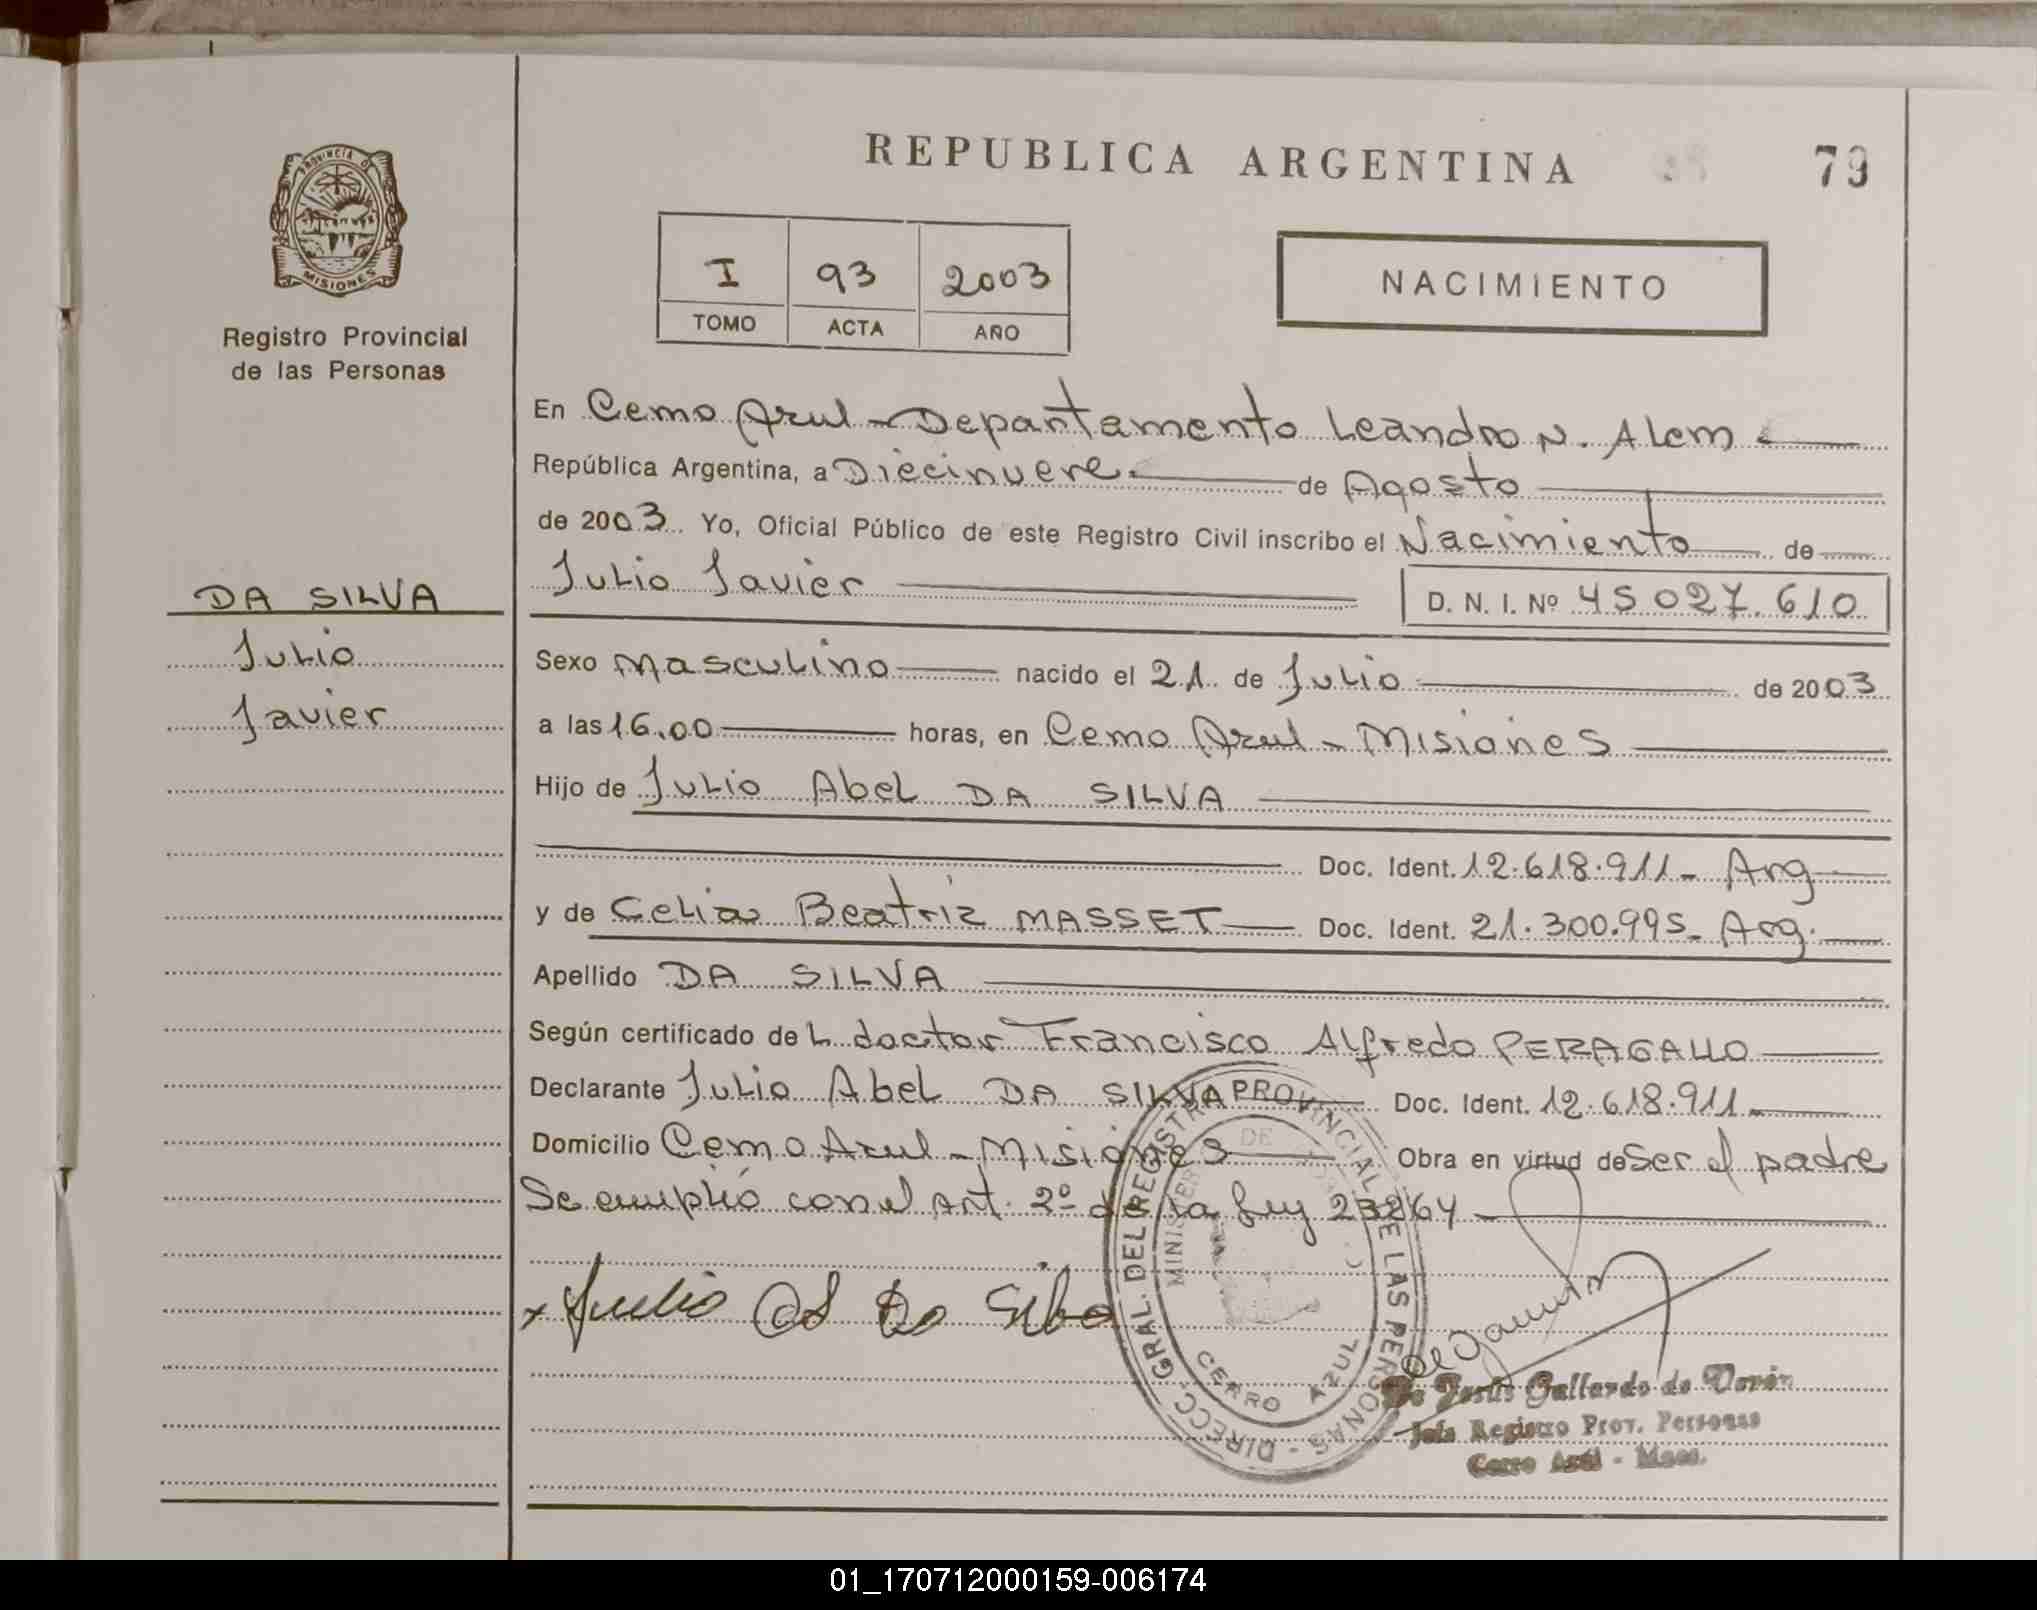 REPUBLICA ARGENTINA
79
PROVINCIA DE MISIONES
Registro Provincial
de las Personas
I 93 2003
TOMO ACTA AÑO
NACIMIENTO
DA SILVA
Julio
Javier
En Cerro Azul - Departamento Leandro N. Alem
República Argentina, a Diecinueve de Agosto
de 2003 Yo, Oficial Público de este Registro Civil inscribo el Nacimiento de
Julio Javier D. N. I. Nº 45 027.610
Sexo Masculino nacido el 21 de Julio de 2003
a las 16.00 horas, en Cerro Azul - Misiones
Hijo de Julio Abel DA SILVA
Doc. Ident. 12.618.911- Arg
y de Celia Beatriz MASSET Doc. Ident. 21.300.995- Arg.
Apellido DA SILVA
Según certificado del doctor Francisco Alfredo PERAGALLO
Declarante Julio Abel DA SILVA Doc. Ident. 12.618.911-
Domicilio Cerro Azul - Misiones Obra en virtud de Ser el padre
Se cumplió con el Art. 2º de la Ley 23264
x Julio Da Silva
DIRECC. GRAL. DEL REGISTRO PROVINCIAL DE LAS PERSONAS
CERRO AZUL
de Jesús Gallardo de
Jefa Registro Prov. Personas
Cerro Azul - Mnes.
01_170712000159-006174